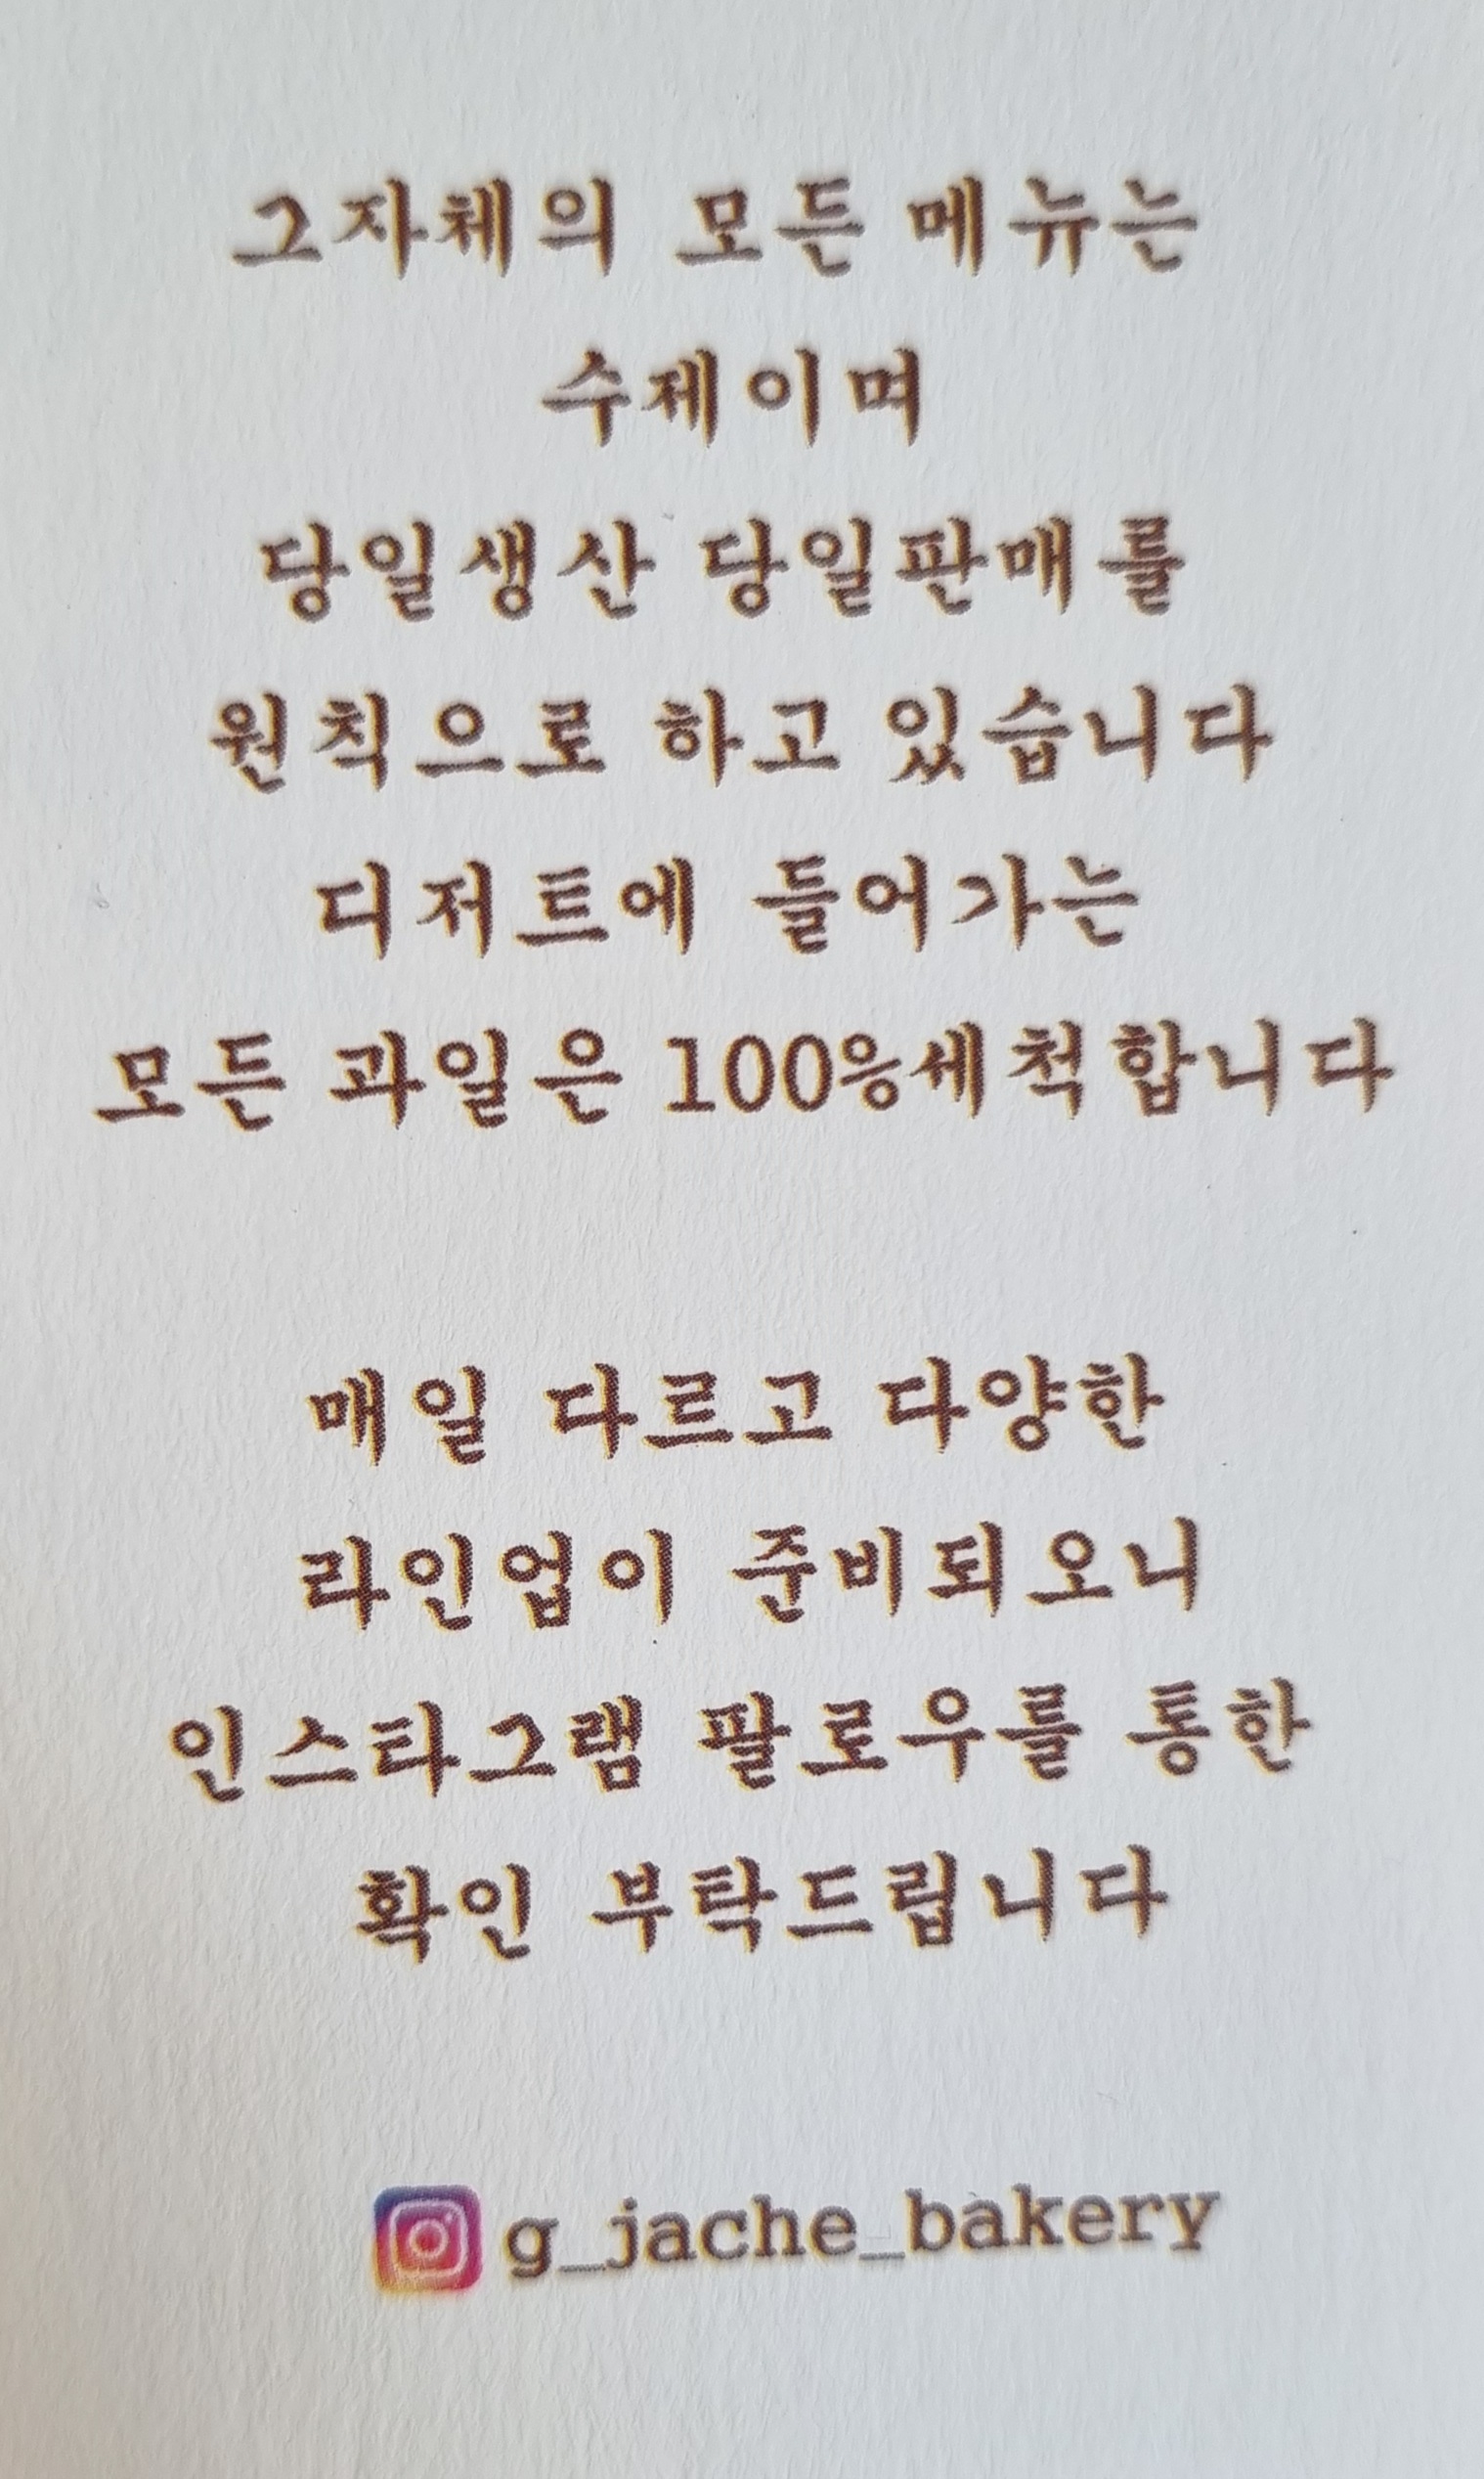 그자체의 모든 메뉴는
수제이며
당일생산 당일판매를
원칙으로 하고 있습니다
디저트에 들어가는
모든 과일은 100%세척합니다
매일 다르고 다양한
라인업이 준비되오니
인스타그램 팔로우를 통한
확인 부탁드립니다
g_jache_bakery